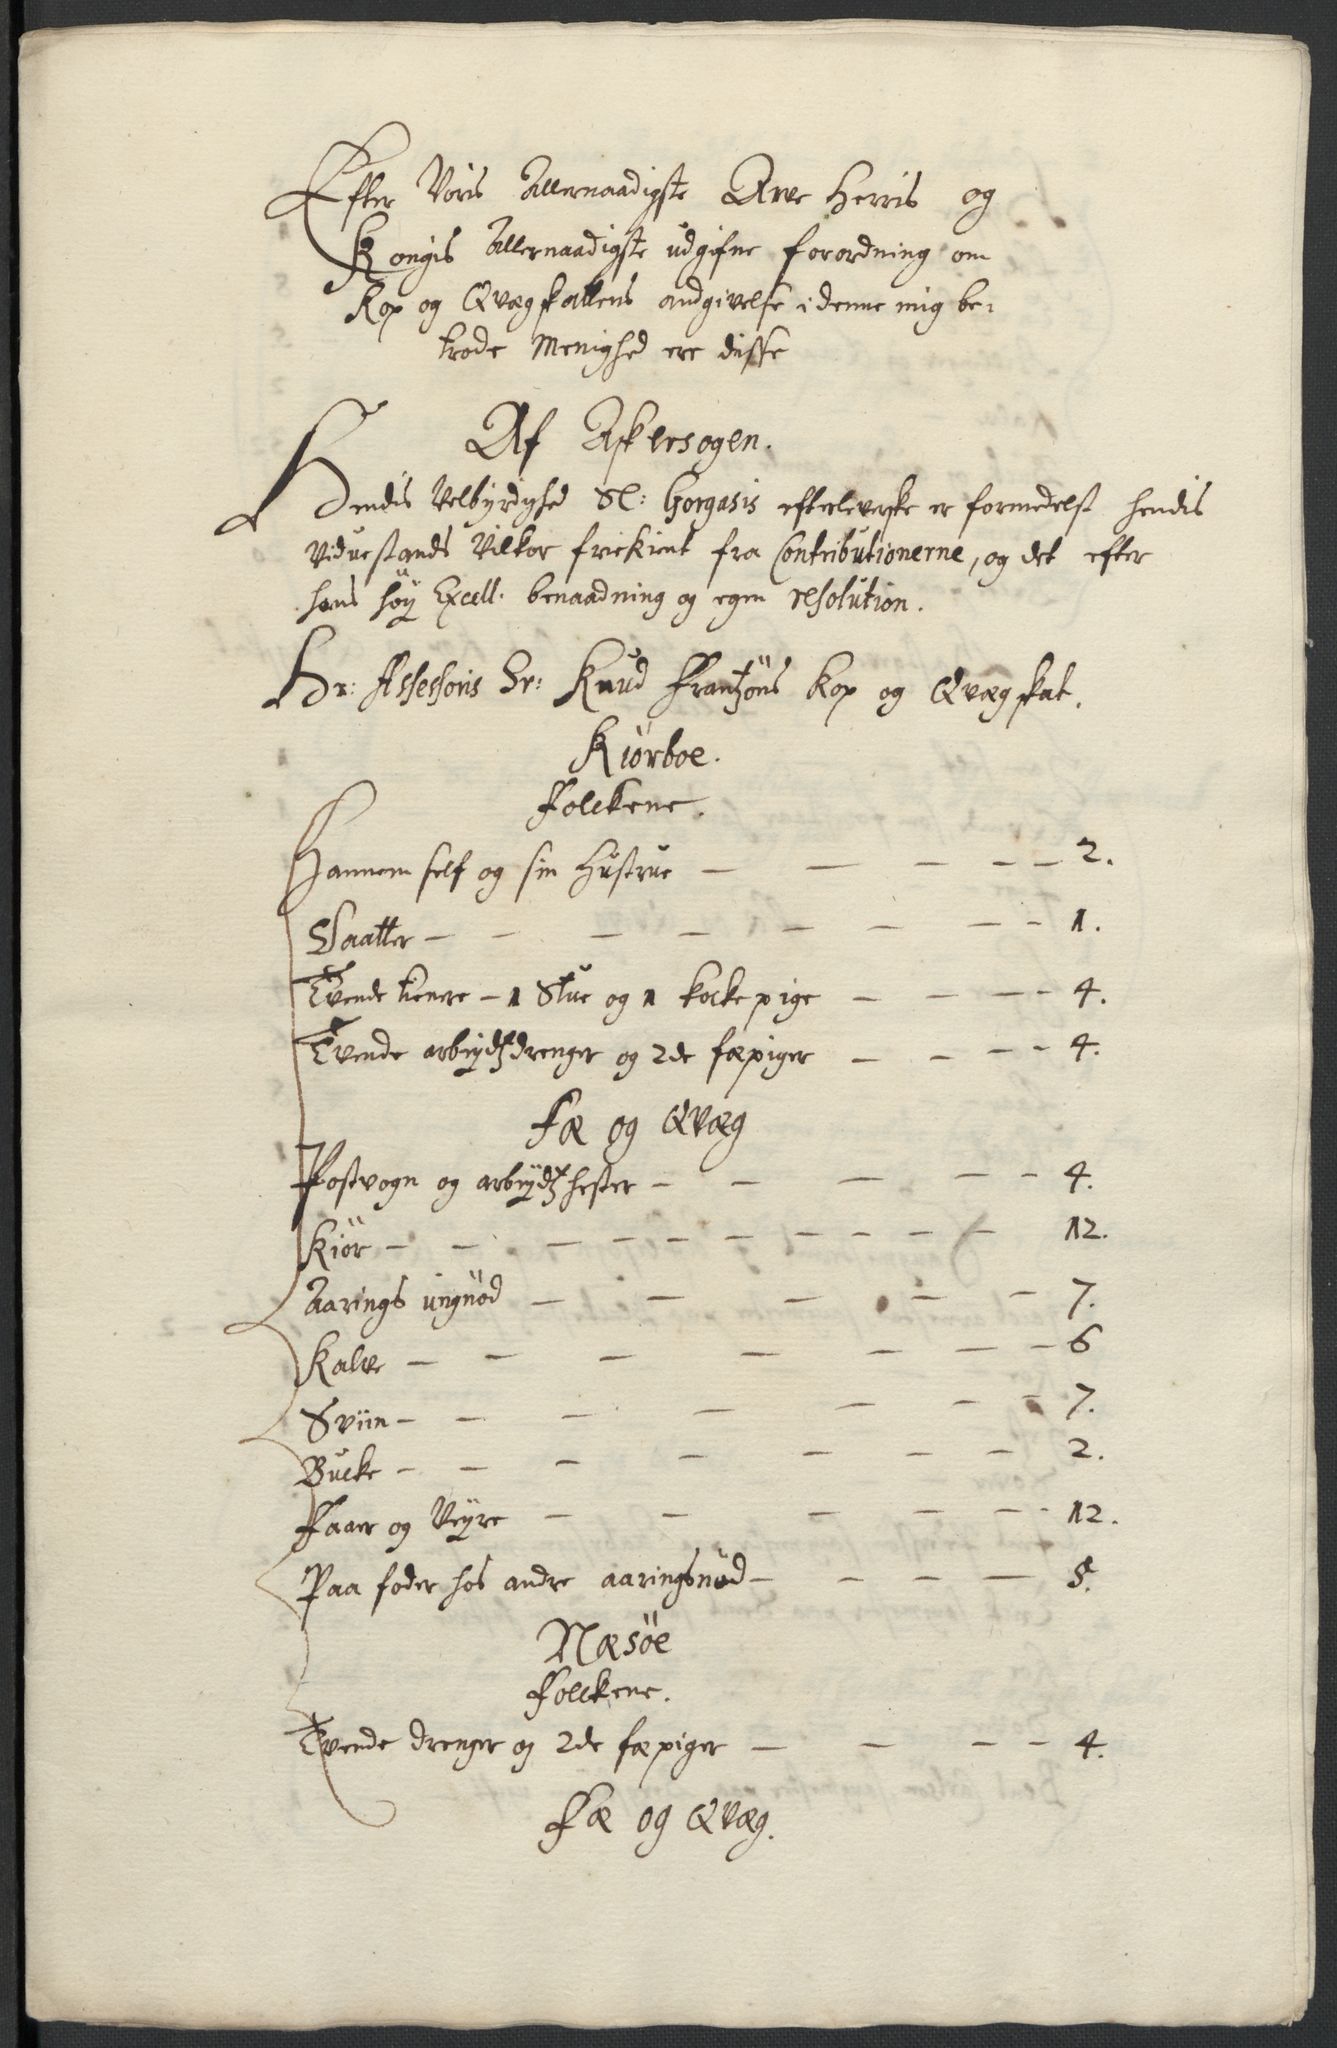 Efter Voris Allernaadigste Arve Herris og
Kongis Allernaadigste udgifne forordning om
Kop og Qvægskattens andgivelse i denne mig be-
trode Menighed ere disse
Af Askersogen.
Hendis Velbyrdighed Sl: Gorgasis efterleverske er formedelst hendis
Viduestands Vilkor friekient fra Contributionerne, og det efter
hans höy Excell. benaadning og egen resolution.
Hr: Assessoris Sr: Knud Frantzöns Kop og Qvægskat.
Kiörboe.
Folckene.
Hannem self og sin Hustrue — — — — — 2.
Daatter — — — — — — — — 1.
Tvende tienere — 1 Stue og 1 kockepige — — — — 4.
Tvende arbeydtzdrenger og 2de fæpiger — — — — 4.
Fæ og Qvæg
Postvogn og arbeydtzhester — — — — — 4.
Kiör — — — — — — — — — — 12.
Aarings ungnöd — — — — — 7.
Kalve — — — — — — — 6
Sviin — — — — — — — 7.
Bucke — — — — — — — 2.
Faar og Veyre — — — — — — 12.
Paa foder hos andre aaringsnöd — — — — 5.
Næsöe
Folckene.
Tvende drenger og 2de fæpiger — — — — 4.
Fæ og Qvæg.